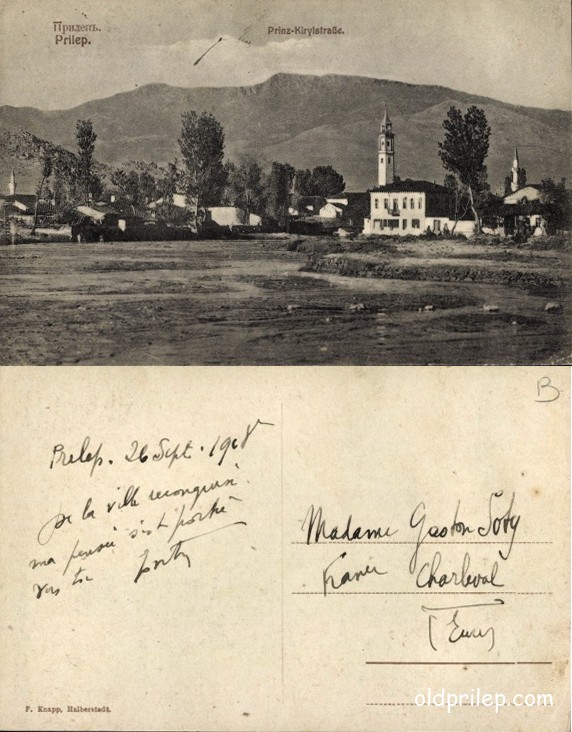 Прилепъ.
Prilep.
Prinz-Kirylstraße.
B
Prelep. 26 Sept. 1918
de la ville reconquise
ma pensée s'est portée
vers toi
Madame Gaston
France Charleval
(Eure)
F. Knapp, Halberstadt.
oldprilep.com